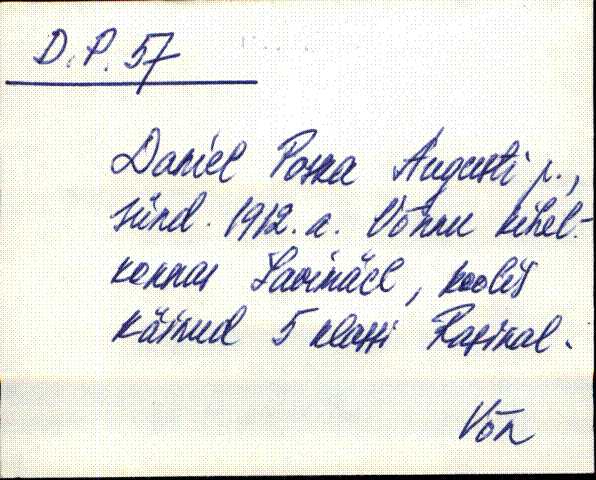 D. P. 57
Daniel Poska Augusti p.,
sünd. 1912. a. Võnnu kihel-
konnas Savimäel, koolis
käinud 5 klassi Rasinal.
Võn